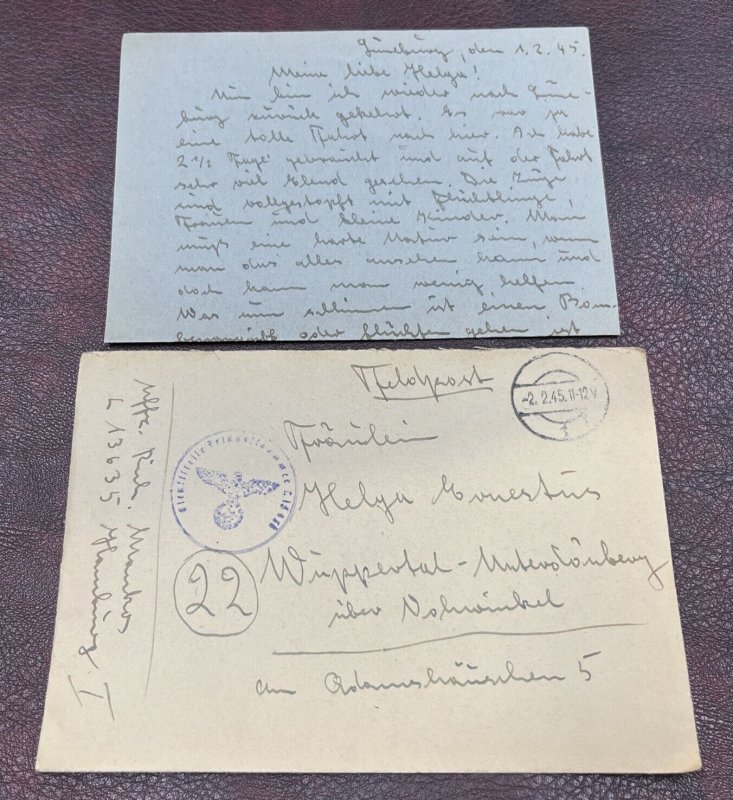 Lüneburg, den 1.2.45.
Meine liebe Helga!
Nun bin ich wieder nach Lüne-
burg zurück gekehrt. Es war ja
eine tolle Fahrt nach hier. Ich habe
2 1/2 Tage gebraucht und auf der Fahrt
sehr viel Elend gesehen. Die Züge
sind vollgestopft mit Flüchtlinge,
Frauen und kleine Kinder. Man
muß eine harte Natur sein, wenn
man das alles ansehen kann und
doch kann man wenig helfen.
Was nun schlimmer ist einen Bom-
benangriff oder flüchten gehen ist
Feldpost
-2.2.45.11-12V
Fräulein
Helga Ernestus
Wuppertal-Unterdönberg
über Vohwinkel
am Adamshäuschen 5
22
Dienststelle Feldpostnummer
Uffz. Rud.
L 13635 Hamburg I